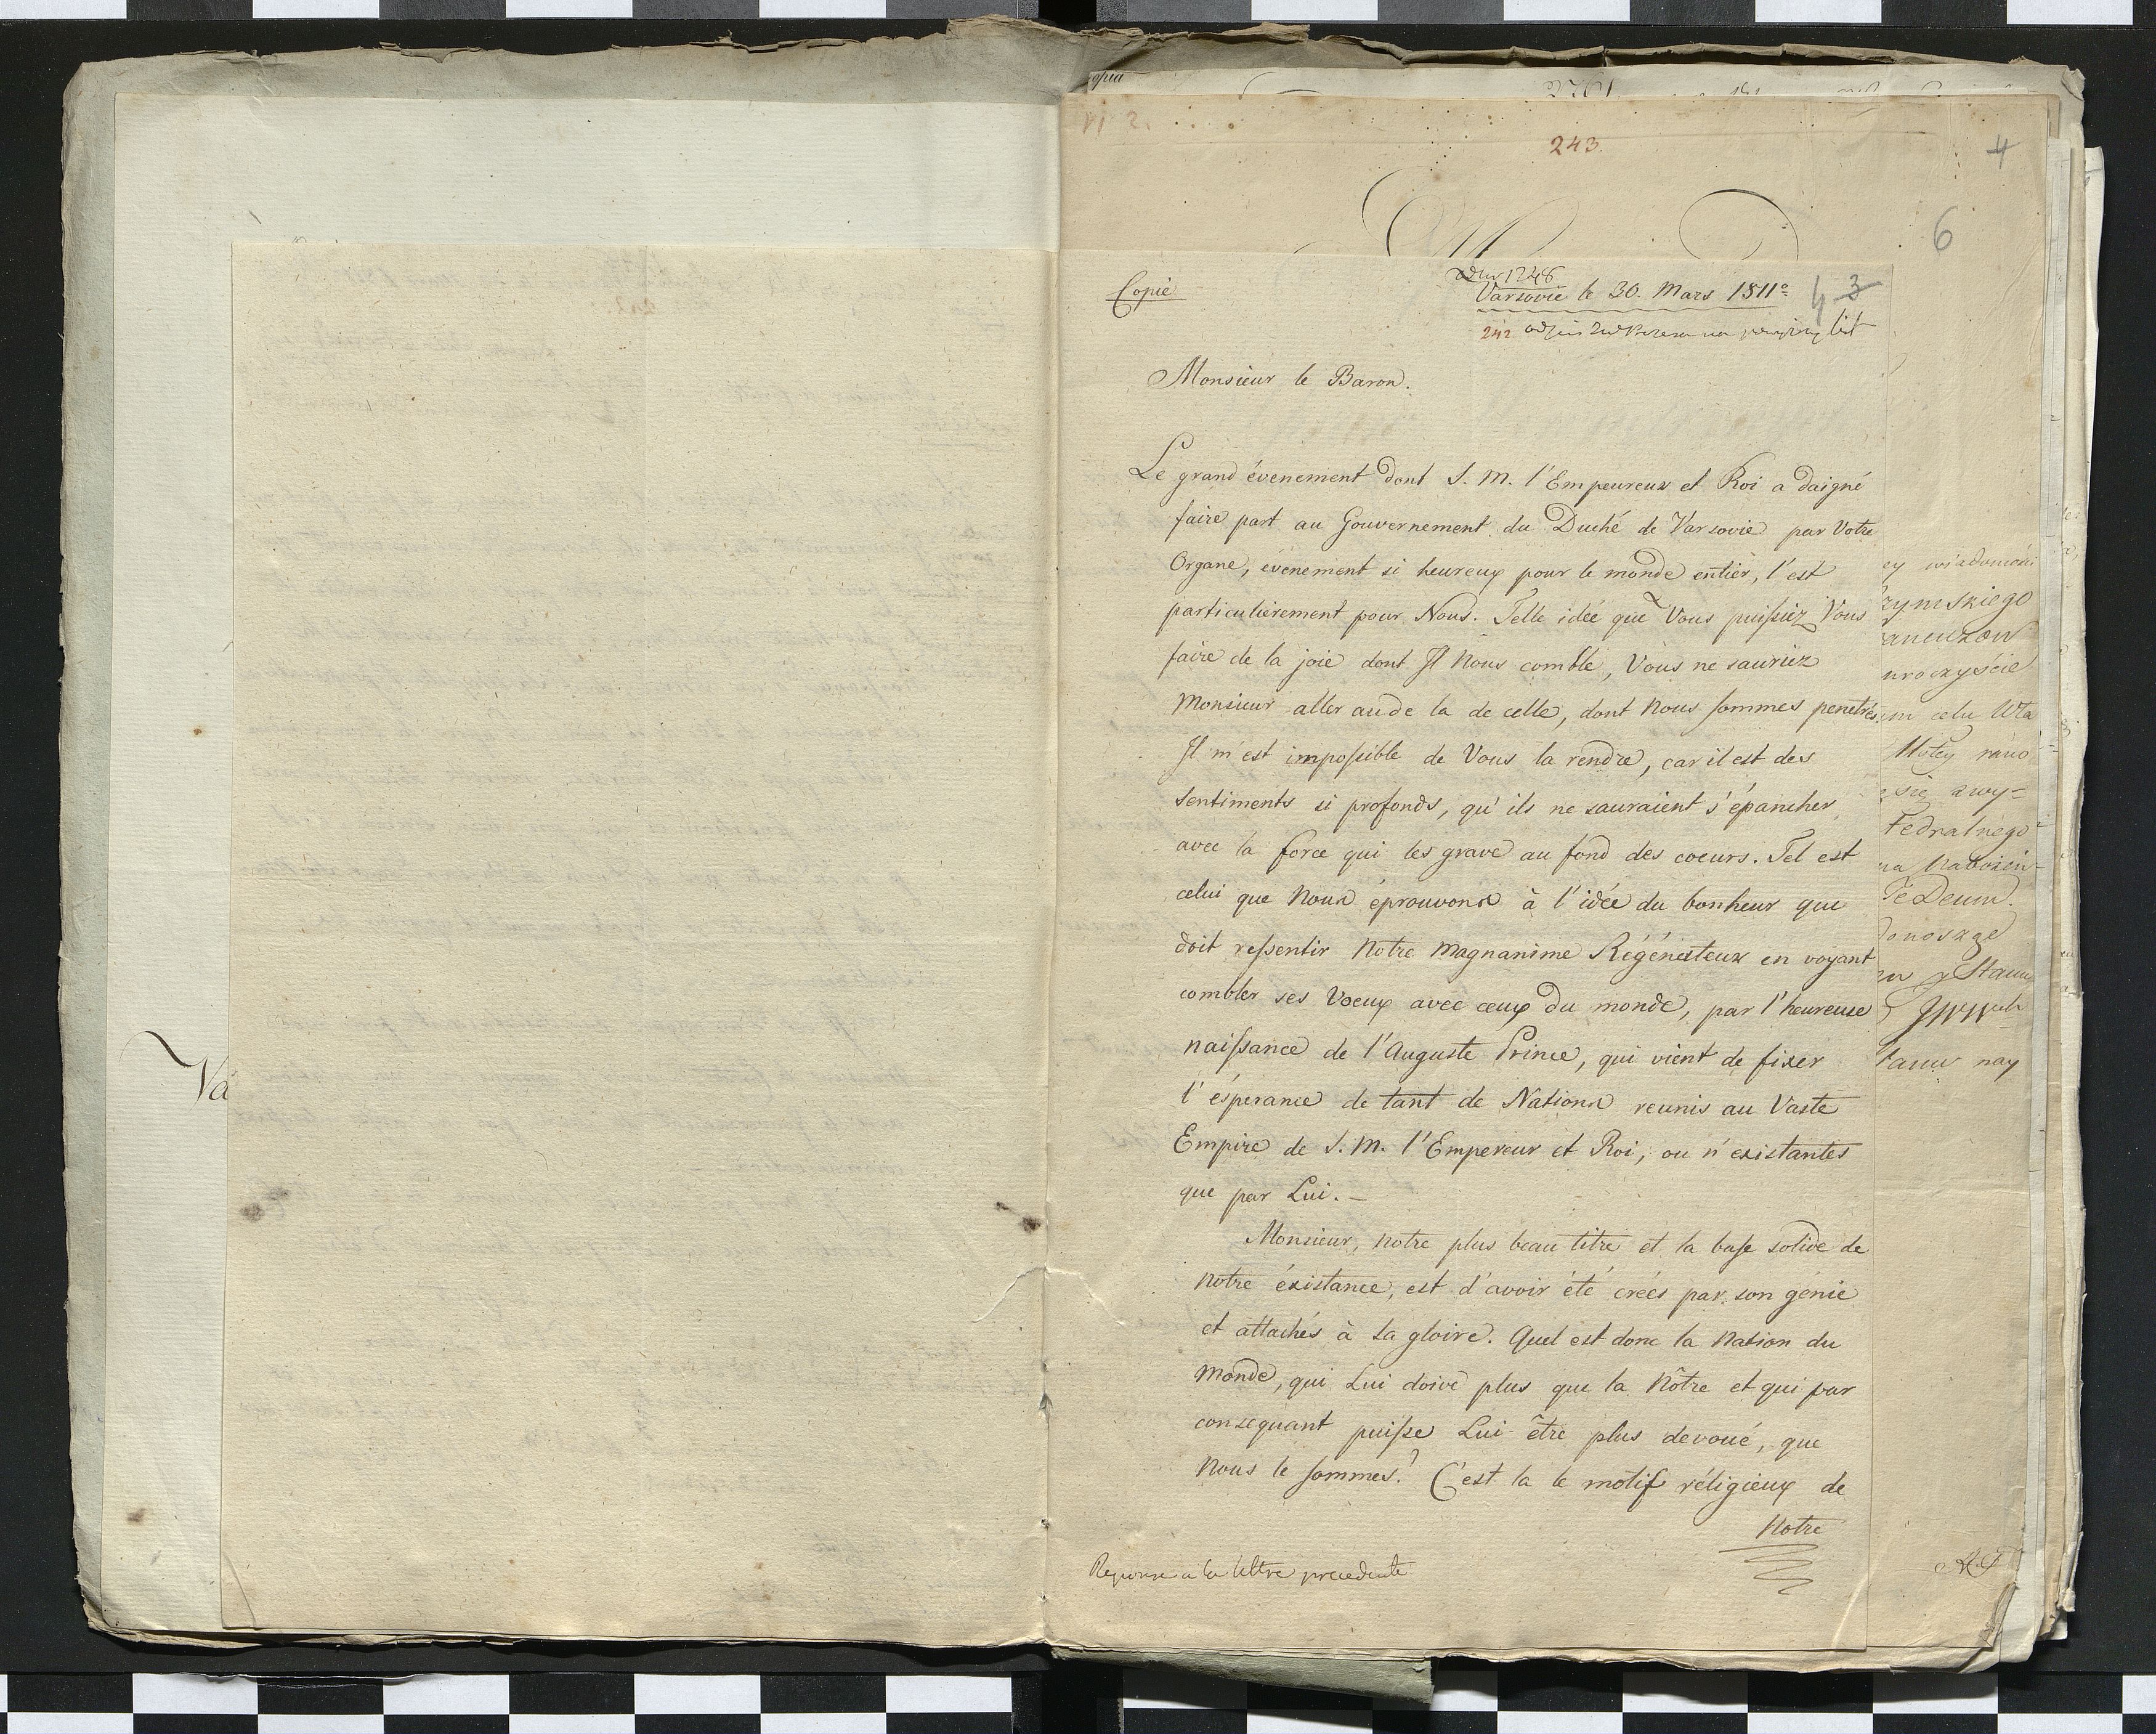 243
4
6
Copie
1248
Varsovie le 30. Mars 1811º
4 3
242
Monsieur le Baron.
Le grand évenement dont S. M. l'Empeureur et Roi a daigné
faire part au Gouvernement du Duché de Varsovie par Votre
Organe, évenement si heureux pour le monde entier, l'est
particulièrement pour Nous. Telle idée que Vous puissiez Vous
faire de la joie dont Il Nous comble, Vous ne sauriez
Monsieur aller aude la de celle, dont Nous sommes penetrés.
Il m'est impossible de Vous la rendre, car il est des
Sentiments si profonds, qu'ils ne sauraient s'épancher
avec la force qui les grave au fond des coeurs. Tel est
celui que Nous éprouvons à l'idée du bonheur que
doit ressentir Notre Magnanime Régénérateur en voyant
combler ses Voeux avec ceux du monde, par l'heureuse
naissance de l'Auguste Prince, qui vient de fixer
l'ésperance de tant de Nations reunis au Vaste
Empire de S. M. l'Empereur et Roi, ou n'existantes
que par Lui. —
Monsieur, notre plus beau titre et la base solide de
Notre éxistance, est d'avoir été créés par son génie
et attachés à sa gloire. Quel est donc la Nation du
Monde, qui Lui doive plus que la Nôtre et qui par
consequant puisse Lui être plus devoué, que
Nous le sommes? C'est la le motif réligieux de
Notre
Reponse a la lettre precedente
ey wiadomości
zymskiego
uroczyście
em celu Wła
rano
zwy=
tedralnego
na Nabożeń-
Te Deum.
donoszę
nay
Va